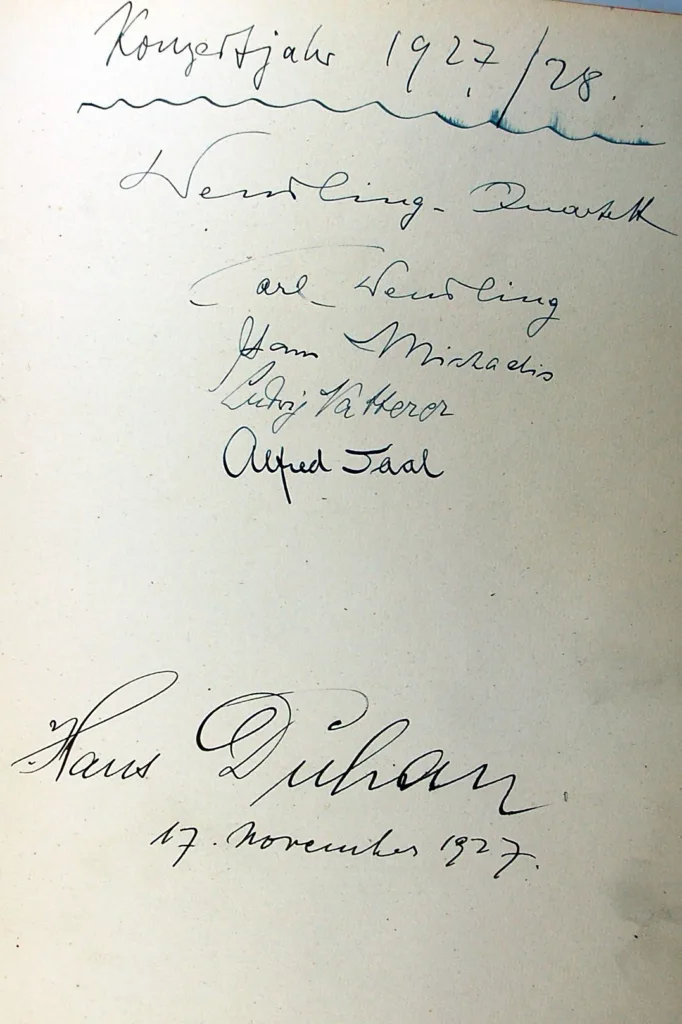 Konzertjahr 1927/28.
Wendling-Quartett
Carl Wendling
Hans Michaelis
Ludwig Natterer
Alfred Saal
Hans Duhan
17. November 1927.